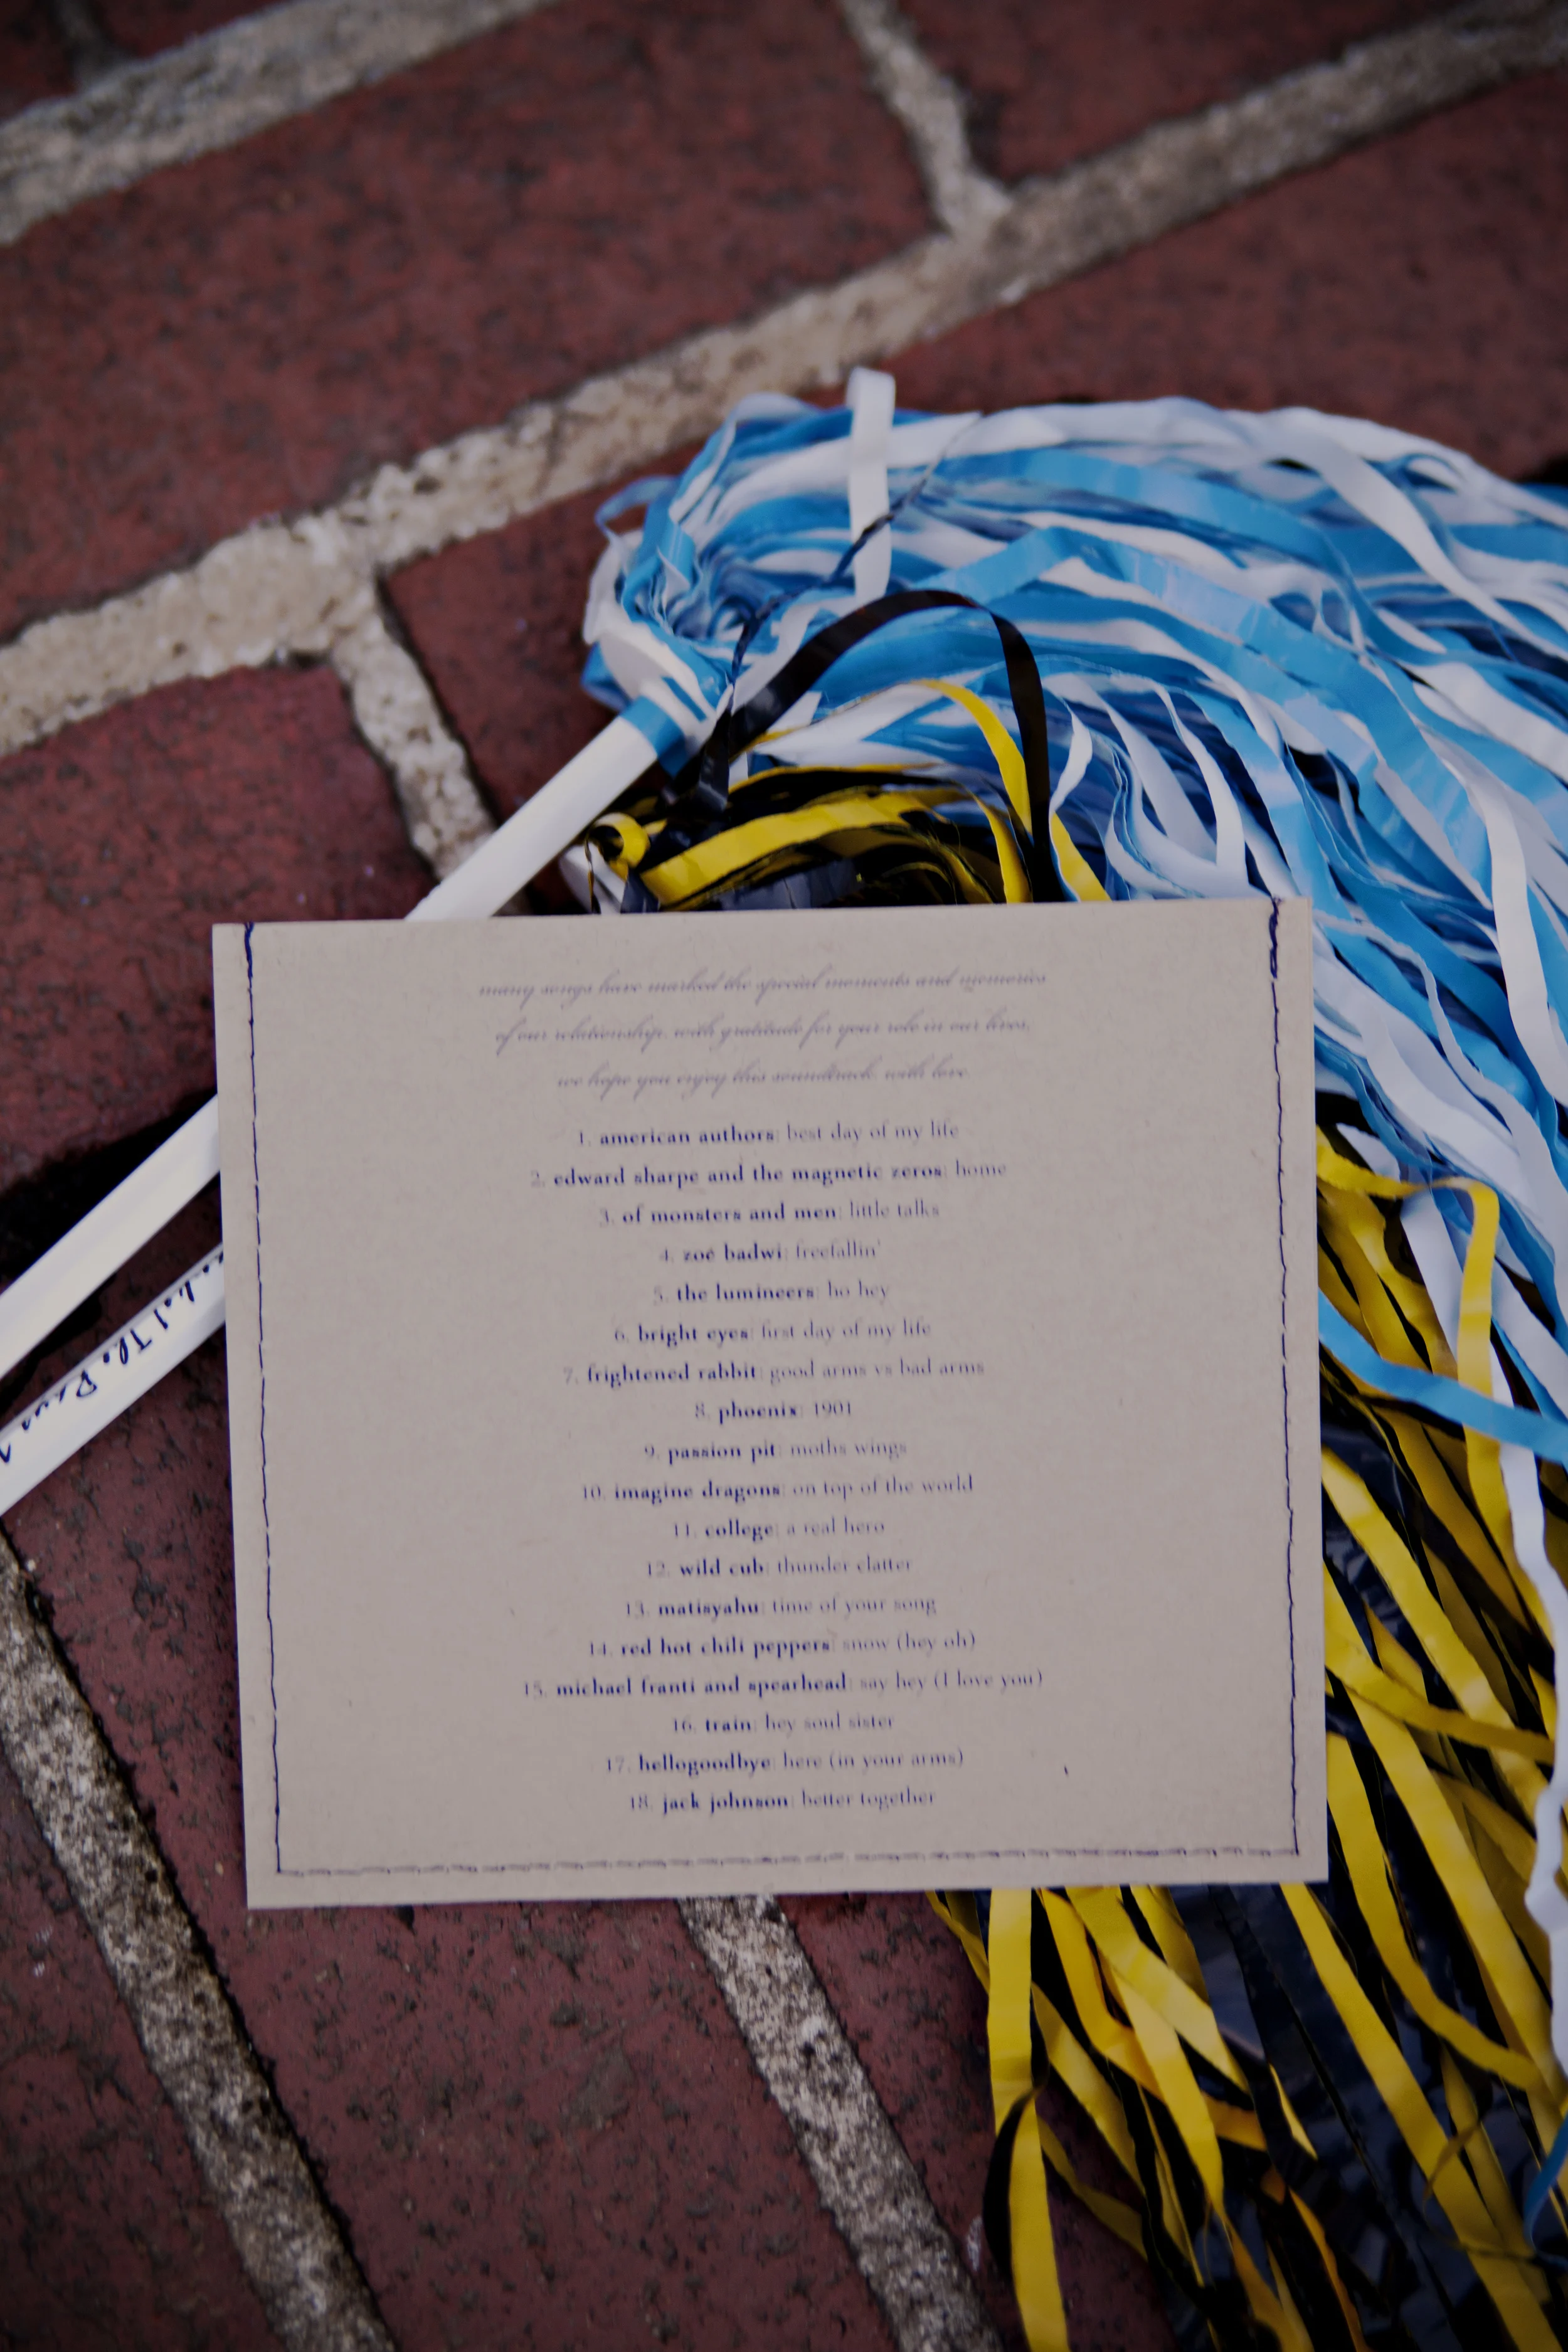 many songs have marked the special moments and memories
of our relationship. with gratitude for your role in our lives,
we hope you enjoy this soundtrack. with love.
1. american authors: best day of my life
2. edward sharpe and the magnetic zeros: home
3. of monsters and men: little talks
4. zoë badwi: freefallin'
5. the lumineers: ho hey
6. bright eyes: first day of my life
7. frightened rabbit: good arms vs bad arms
8. phoenix: 1901
9. passion pit: moths wings
10. imagine dragons: on top of the world
11. college: a real hero
12. wild cub: thunder clatter
13. matisyahu: time of your song
14. red hot chili peppers: snow (hey oh)
15. michael franti and spearhead: say hey (I love you)
16. train: hey soul sister
17. hellogoodbye: here (in your arms)
18. jack johnson: better together